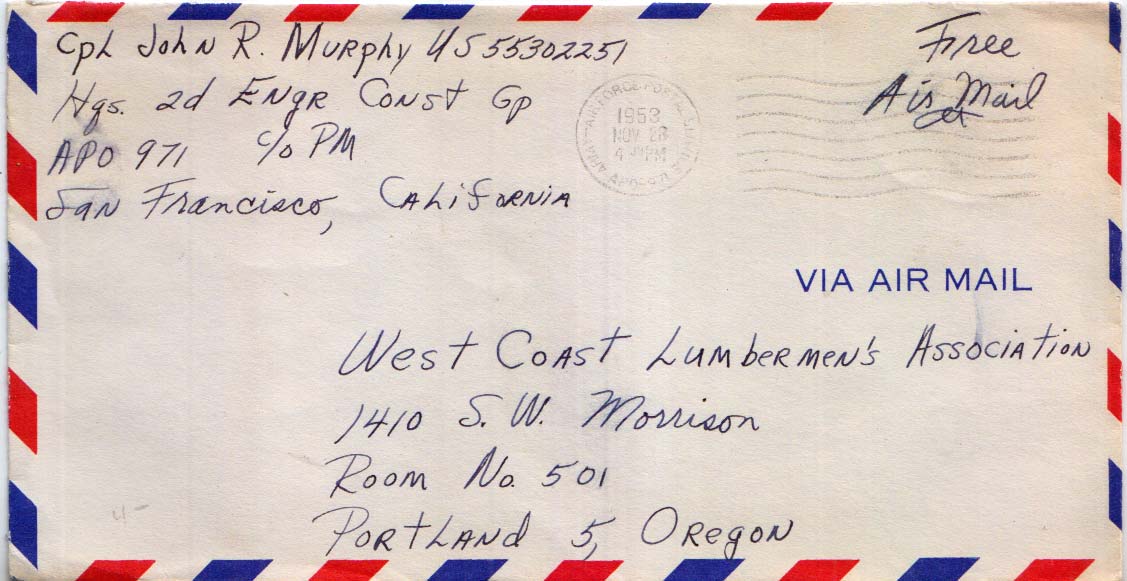 Cpl John R. Murphy US55302251
Hqs. 2d Engr Const Gp
APO 971 c/o PM
San Francisco, California
Free
Air Mail
ARMY-AIR FORCE POSTAL SERVICE
1953
NOV 28
4 PM
APO 971
VIA AIR MAIL
West Coast Lumbermen's Association
1410 S.W. Morrison
Room No. 501
Portland 5, Oregon
4-